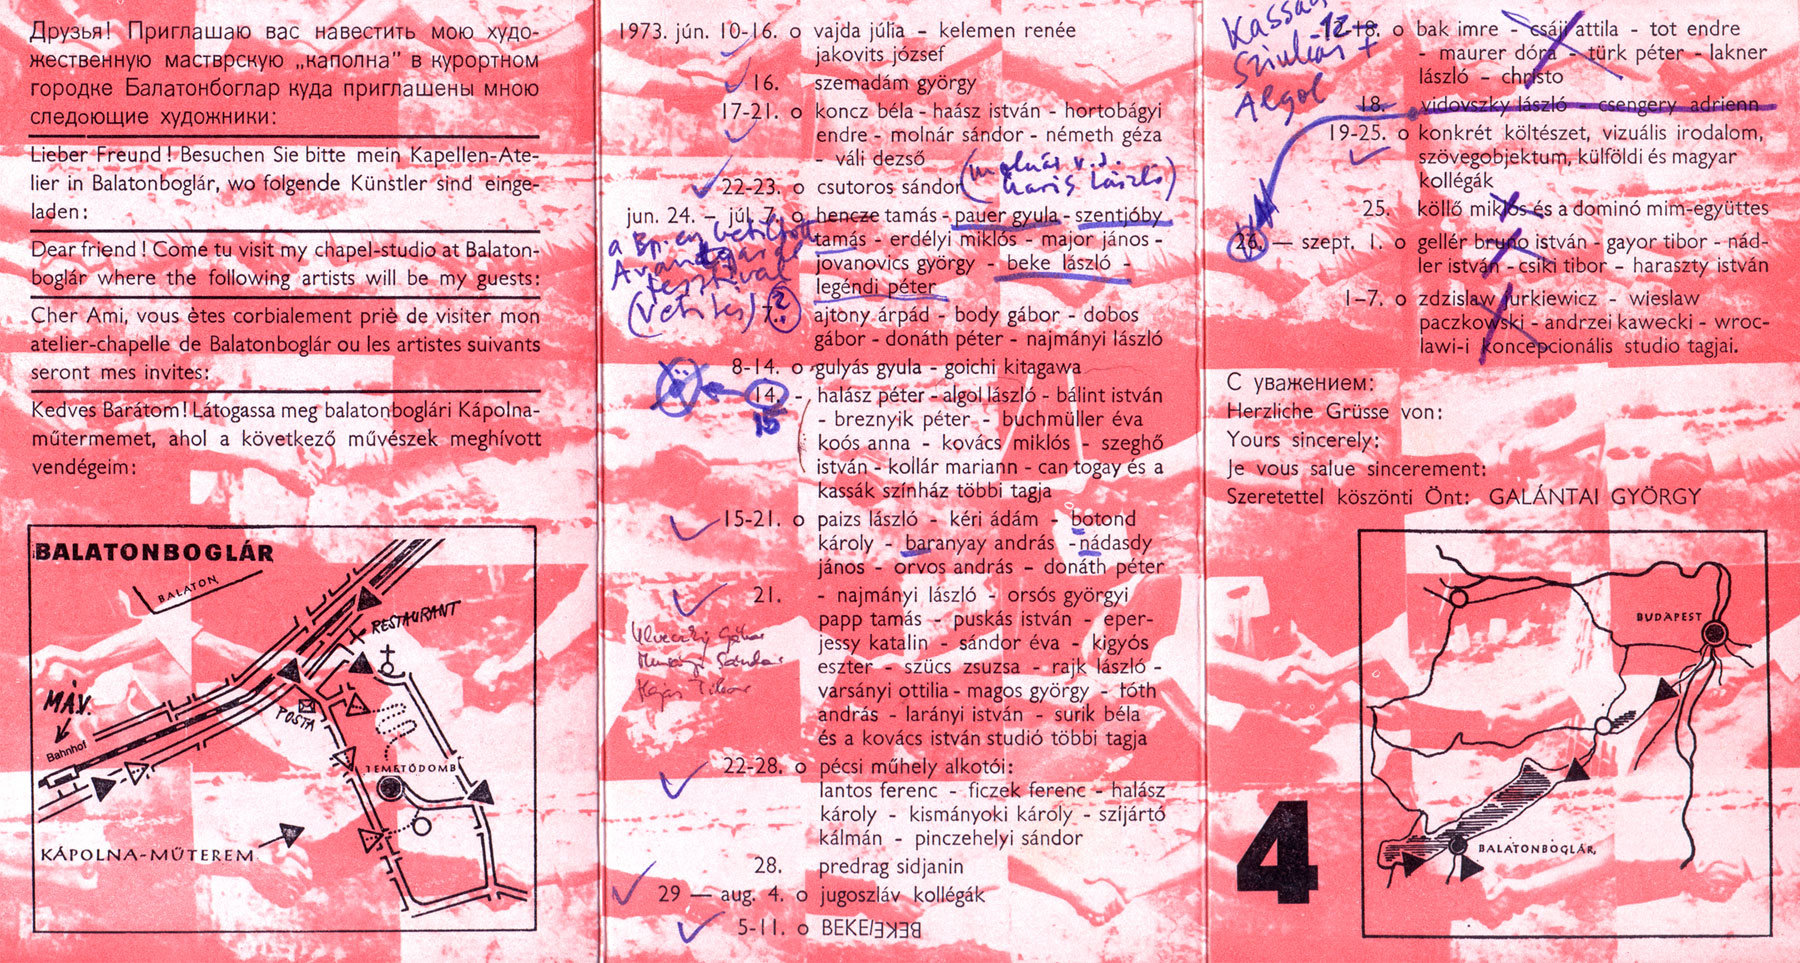 Друзья! Приглашаю вас навестить мою худо-
жественную маствpскую „каполна" в курортном
городке Балатонбоглар куда приглашены мною
следоющие художники:
Lieber Freund! Besuchen Sie bitte mein Kapellen-Ate-
lier in Balatonboglár, wo folgende Künstler sind einge-
laden:
Dear friend! Come tu visit my chapel-studio at Balaton-
boglár where the following artists will be my guests:
Cher Ami, vous ètes corbialement priè de visiter mon
atelier-chapelle de Balatonboglár ou les artistes suivants
seront mes invites:
Kedves Barátom! Látogassa meg balatonboglári Kápolna-
műtermemet, ahol a következő művészek meghívott
vendégeim:
BALATONBOGLÁR
BALATON
RESTAURANT
MÁV.
Bahnhof
POSTA
TEMETŐDOMB
KÁPOLNA-MŰTEREM
1973. jún. 10-16. o vajda júlia - kelemen renée
jakovits józsef
16. szemadám györgy
17-21. o koncz béla - haász istván - hortobágyi
endre - molnár sándor - németh géza
- váli dezső
22-23. o csutoros sándor
(molnár v. j.
haris lászló)
jun. 24. – júl. 7. o hencze tamás - pauer gyula - szentjóby
tamás - erdélyi miklós - major jános -
jovanovics györgy - beke lászló -
legéndi péter
a Bp.-en betiltott
Avantgarde
fesztivál
(vetítés) 7. ?
ajtony árpád - body gábor - dobos
gábor - donáth péter - najmányi lászló
8-14. o gulyás gyula - goichi kitagawa
14. - halász péter - algol lászló - bálint istván
15
- breznyik péter - buchmüller éva
koós anna - kovács miklós - szeghő
istván - kollár mariann - can togay és a
kassák színház többi tagja
15-21. o paizs lászló - kéri ádám - botond
károly - baranyay andrás - nádasdy
jános - orvos andrás - donáth péter
21. - najmányi lászló - orsós györgyi
papp tamás - puskás istván - eper-
jessy katalin - sándor éva - kigyós
eszter - szücs zsuzsa - rajk lászló -
varsányi ottilia - magos györgy - tóth
andrás - larányi istván - surik béla
és a kovács istván studió többi tagja
22-28. o pécsi műhely alkotói:
lantos ferenc - ficzek ferenc - halász
károly - kismányoki károly - szíjártó
kálmán - pinczehelyi sándor
28. predrag sidjanin
29 — aug. 4. o jugoszláv kollégák
5-11. o BEKE/BEKE
Kassák
Színház +
Algol
12-18. o bak imre - csáji attila - tot endre
- maurer dóra - türk péter - lakner
lászló - christo
18. vidovszky lászló - csengery adrienn
19-25. o konkrét költészet, vizuális irodalom,
szövegobjektum, külföldi és magyar
kollégák
25. köllő miklós és a dominó mim-együttes
26. — szept. 1. o gellér bruno istván - gayor tibor - nád-
ler istván - csiki tibor - haraszty istván
1–7. o zdzislaw jurkiewicz - wieslaw
paczkowski - andrzei kawecki - wroc-
lawi-i koncepcionális studio tagjai.
С уважением:
Herzliche Grüsse von:
Yours sincerely:
Je vous salue sincerement:
Szeretettel köszönti Önt: GALÁNTAI GYÖRGY
4
BUDAPEST
BALATONBOGLÁR